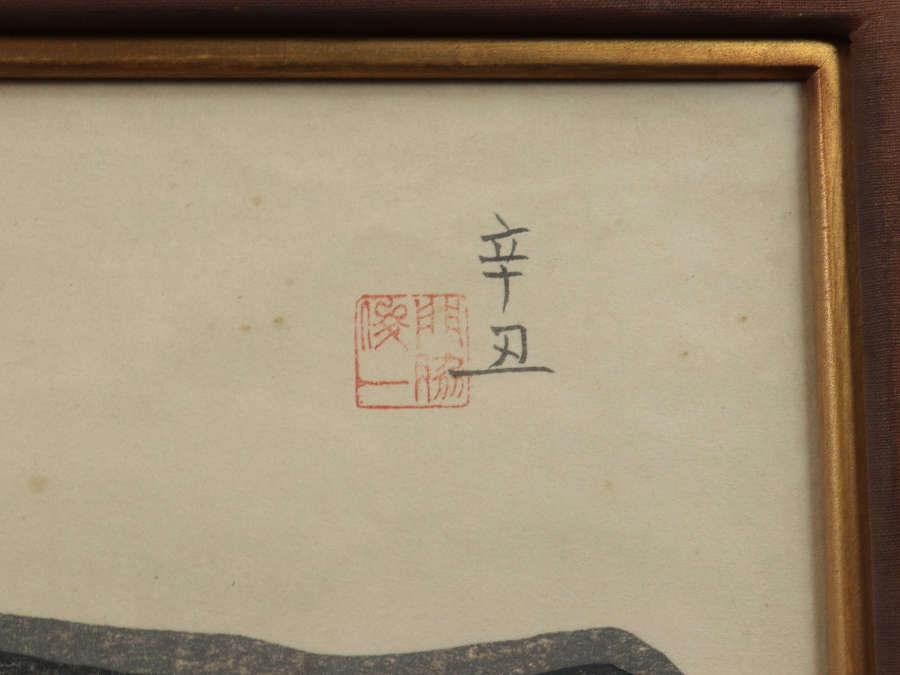 辛丑
門脇
俊一